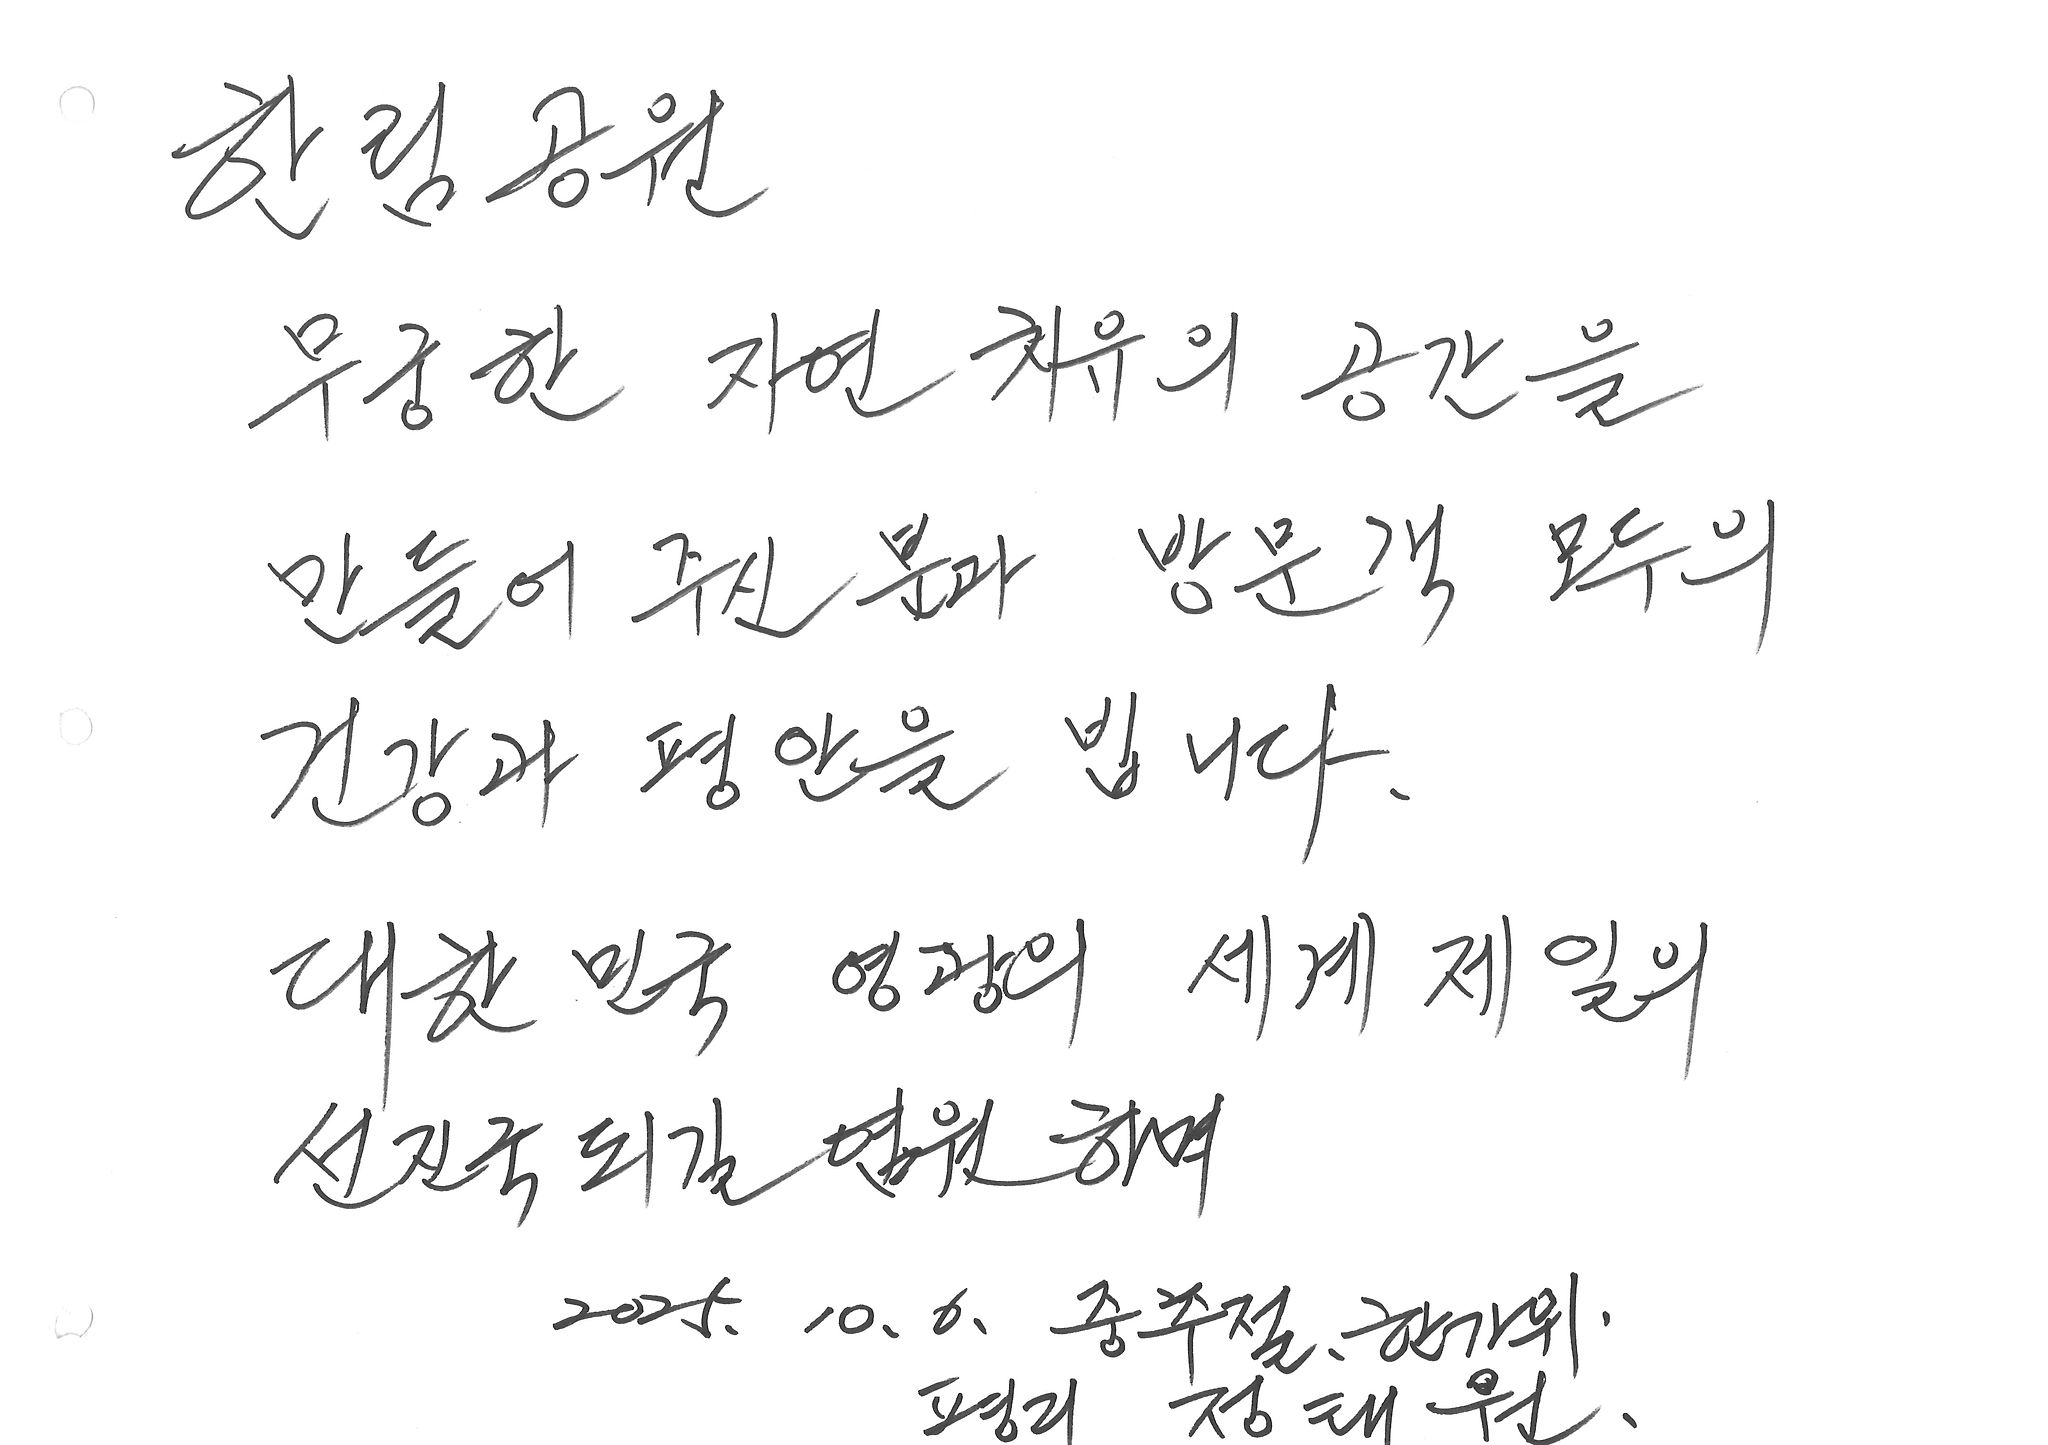 한림공원
무궁한 자연 치유의 공간을
만들어 주신 분과 방문객 모두의
건강과 평안을 빕니다.
대한민국 영광의 세계 제일의
선진국 되길 염원하며
2025. 10. 6. 중추절. 한가위.
평리 정태원.